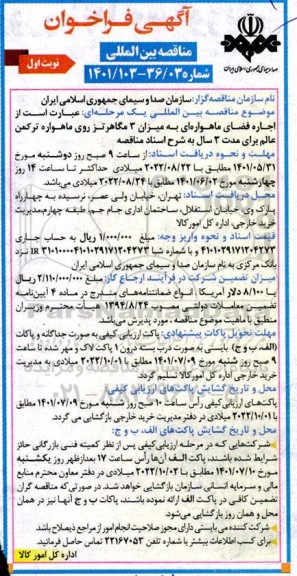 آگهی فراخوان
مناقصه بین المللی
شماره ۱۴۰۱/۱۰۳-۳۶/۰۳
نوبت اول
صدا و سیمای جمهوری اسلامی ایران
نام سازمان مناقصه گزار: سازمان صدا و سیمای جمهوری اسلامی ایران
موضوع مناقصه بین المللی یک مرحله‌ای: عبارت است از
اجاره فضای ماهواره‌ای به میزان ۳ مگاهرتز روی ماهواره ترکمن
عالم برای مدت ۳ سال به شرح اسناد مناقصه
مهلت و نحوه دریافت اسناد: از ساعت ۹ صبح روز دوشنبه مورخ
۱۴۰۱/۰۵/۳۱ مطابق با ۲۰۲۲/۰۸/۲۲ میلادی حداکثر تا ساعت ۱۴ روز
چهارشنبه مورخ ۱۴۰۱/۰۶/۰۲ مطابق با ۲۰۲۲/۰۸/۲۴ میلادی می‌باشد.
محل دریافت اسناد: تهران، خیابان ولی عصر، نرسیده به چهارراه
پارک وی، خیابان استقلال، ساختمان اداری جام جم، طبقه چهارم، مدیریت
خرید خارجی، اداره کل امور کالا
قیمت اسناد و نحوه واریز وجه: مبلغ ۱/۰۰۰/۰۰۰ ریال به حساب جاری
۴۱۰۱۰۲۹۱۷۱۲۰۴۲۷۳ و با شماره شبا IR ۳۱۰۱۰۰۰۰۴۱۰۱۰۲۹۱۷۱۲۰۴۲۷۳ نزد
بانک مرکزی به نام سازمان صدا و سیمای جمهوری اسلامی ایران
میزان تضمین شرکت در فرآیند ارجاع کار: مبلغ ۲/۱۱۰/۰۰۰/۰۰۰ ریال یا
۸/۱۰۰ دلار آمریکا | انواع ضمانتنامه‌های مندرج در ماده ۴ آیین‌نامه
تضمین معاملات دولتی مصوب ۱۳۹۴/۸/۲۴ هیات محترم وزیران
منطبق با ماهیت موضوع مناقصه، مورد پذیرش می‌باشد.
مهلت تحویل پاکات پیشنهادی: پاکت ارزیابی کیفی به صورت جداگانه و پاکات
(الف، ب و ج) بایستی به صورت دربسته درون ۱ پاکت لاک و مهر شده تا ساعت
۹ صبح روز شنبه مورخ ۱۴۰۱/۰۷/۰۹ مطابق با ۲۰۲۲/۱۰/۰۱ میلادی به مدیریت
خرید خارجی اداره کل امور کالا تسلیم گردد.
محل و تاریخ گشایش پاکت‌های ارزیابی کیفی:
پاکت‌های ارزیابی کیفی راس ساعت ۱۰ صبح روز شنبه مورخ ۱۴۰۱/۰۷/۰۹ مطابق
با ۲۰۲۲/۱۰/۰۱ میلادی در دفتر مدیریت خرید خارجی بازگشایی می گردد.
محل و تاریخ گشایش پاکت‌های الف، ب و ج:
شرکت‌هایی که در مرحله ارزیابی کیفی پس از نظر کمیته فنی بازرگانی حائز
شرایط شده باشند، پاکت الف آن‌ها رأس ساعت ۱۷ بعدازظهر روز یکشنبه
مورخ ۱۴۰۱/۰۷/۱۰ مطابق با ۲۰۲۲/۱۰/۰۲ میلادی در دفتر معاون محترم منابع
مالی و سرمایه انسانی سازمان بازگشایی خواهد شد. در صورتی که مناقصه گران
تضمین کافی در پاکت الف ارائه نموده باشند، پاکات ب و ج آنها نیز در همان
محل و همان روز بازگشایی می‌شود.
شرکت کننده می بایستی دارای مجوز صلاحیت انجام امور از مراجع ذیصلاح باشد.
برای کسب اطلاعات بیشتر با شماره تلفن ۲۲۱۶۷۰۵۲ تماس حاصل فرمائید.
اداره کل امور کالا